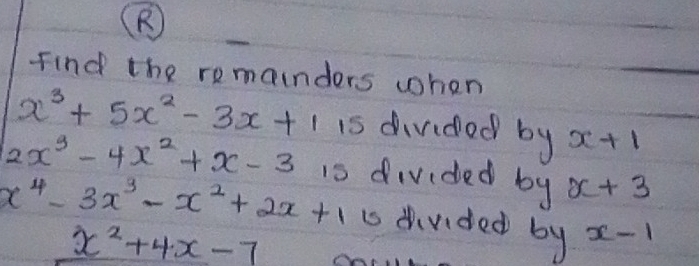 R
Find the remainders when
x³ + 5x² - 3x + 1 is divided by x + 1
2x³ - 4x² + x - 3 is divided by x + 3
x⁴ - 3x³ - x² + 2x + 1 is divided by x - 1
x² + 4x - 7